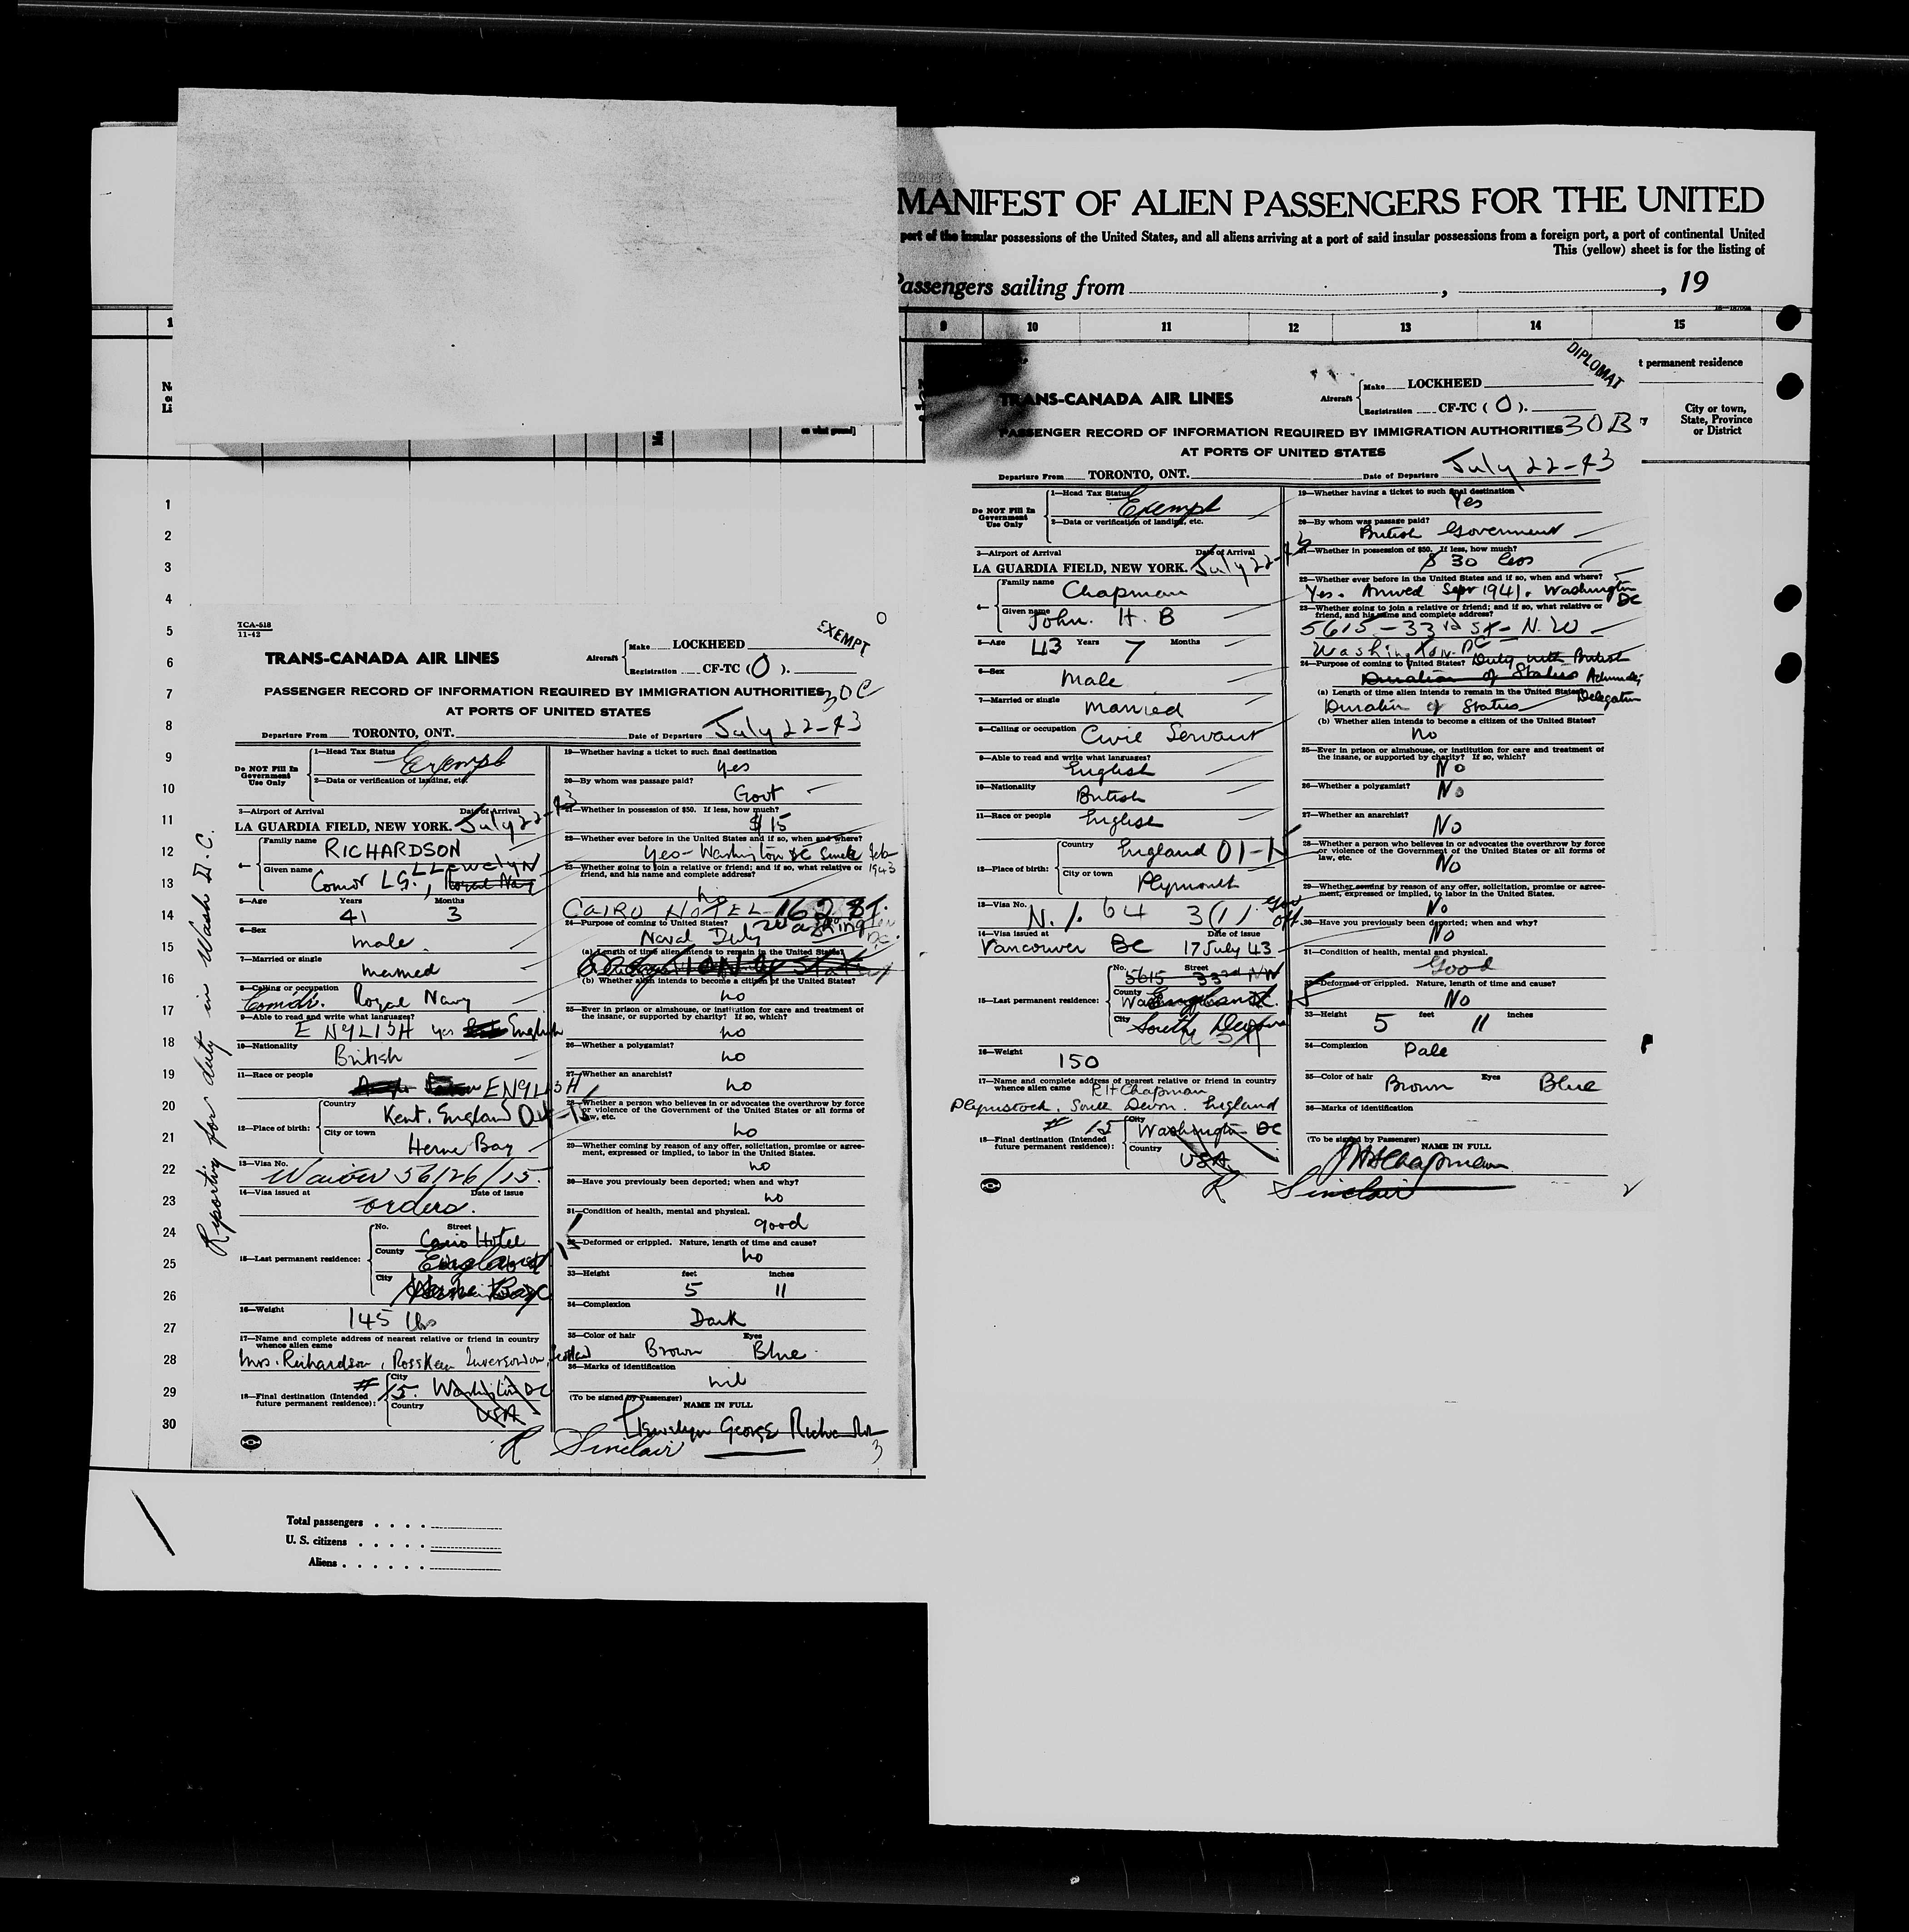 MANIFEST OF ALIEN PASSENGERS FOR THE UNITED
port of the insular possessions of the United States, and all aliens arriving at a port of said insular possessions from a foreign port, a port of continental United
This (yellow) sheet is for the listing of
Passengers sailing from , , 19
9 10 11 12 13 14 15
t permanent residence
City or town,
State, Province
or District
1
2
3
4
5
6
7
8
9
10
11
12
13
14
15
16
17
18
19
20
21
22
23
24
25
26
27
28
29
30
Reporting for duty in Wash D.C.
TCA-518
11-42
EXEMPT
TRANS-CANADA AIR LINES
Aircraft Make LOCKHEED
Registration CF-TC (O).
PASSENGER RECORD OF INFORMATION REQUIRED BY IMMIGRATION AUTHORITIES 30C
AT PORTS OF UNITED STATES
Departure From TORONTO, ONT. Date of Departure July 22-43
Do NOT Fill In Government Use Only
1—Head Tax Status Exempt
2—Data or verification of landing, etc.
3—Airport of Arrival Date of Arrival
LA GUARDIA FIELD, NEW YORK. July 22-43
4— Family name RICHARDSON
LLEWELYN
Given name Comdr LG., Royal Navy
5—Age Years Months
41 3
6—Sex
male
7—Married or single
married
8—Calling or occupation
Comdr. Royal Navy
9—Able to read and write what languages?
ENGLISH yes English
10—Nationality
British
11—Race or people
ENGLISH
12—Place of birth: Country
Kent. England 04-15
City or town
Herne Bay
13—Visa No.
Waiver 56126/15.
14—Visa issued at Date of issue
orders.
15—Last permanent residence: No. Street
Cairo Hotel
County
England 15
City
16—Weight
145 lbs
17—Name and complete address of nearest relative or friend in country
whence alien came
Mrs. Richardson, Rosskeen Invergordon, Scotland
18—Final destination (Intended
future permanent residence): City
# 15. Washington DC
Country
USA
19—Whether having a ticket to such final destination
yes
20—By whom was passage paid?
Govt
21—Whether in possession of $50. If less, how much?
$15
22—Whether ever before in the United States and if so, when and where?
yes - Washington DC since Feb 1943
23—Whether going to join a relative or friend; and if so, what relative or
friend, and his name and complete address?
no
CAIRO HOTEL 16
24—Purpose of coming to United States?
Naval Duty Washington DC.
(a) Length of time alien intends to remain in the United States?
(b) Whether alien intends to become a citizen of the United States?
no
25—Ever in prison or almshouse, or institution for care and treatment of
the insane, or supported by charity? If so, which?
no
26—Whether a polygamist?
no
27—Whether an anarchist?
no
28—Whether a person who believes in or advocates the overthrow by force
or violence of the Government of the United States or all forms of
law, etc.
no
29—Whether coming by reason of any offer, solicitation, promise or agree-
ment, expressed or implied, to labor in the United States.
no
30—Have you previously been deported; when and why?
no
31—Condition of health, mental and physical.
good
32—Deformed or crippled. Nature, length of time and cause?
no
33—Height feet inches
5 11
34—Complexion
Dark
35—Color of hair Eyes
Brown Blue
36—Marks of identification
nil
(To be signed by Passenger)
NAME IN FULL
Llewelyn George Richardson
R Sinclair
3
Total passengers
U. S. citizens
Aliens
DIPLOMAT
TRANS-CANADA AIR LINES
Aircraft Make LOCKHEED
Registration CF-TC (O).
PASSENGER RECORD OF INFORMATION REQUIRED BY IMMIGRATION AUTHORITIES 30B
AT PORTS OF UNITED STATES
Departure From TORONTO, ONT. Date of Departure July 22-43
Do NOT Fill In Government Use Only
1—Head Tax Status Exempt
2—Data or verification of landing, etc.
3—Airport of Arrival Date of Arrival
LA GUARDIA FIELD, NEW YORK. July 22-43
4— Family name
Chapman
Given name
John. H. B
5—Age 43 Years 7 Months
6—Sex
Male
7—Married or single
Married
8—Calling or occupation
Civil Servant
9—Able to read and write what languages?
English
10—Nationality
British
11—Race or people
English
12—Place of birth: Country
England 01-15
City or town
Plymouth
13—Visa No.
N.I. 64 3(1) Gov Off.
14—Visa issued at Date of issue
Vancouver BC 17 July 43
15—Last permanent residence: No. Street
5615 33rd NW
County
City
South Devon
16—Weight
150
17—Name and complete address of nearest relative or friend in country
whence alien came
RH Chapman
Plymstock. South Devon. England
18—Final destination (Intended
future permanent residence): City
# 15 Washington DC
Country
USA
19—Whether having a ticket to such final destination
Yes
20—By whom was passage paid?
British Government
21—Whether in possession of $50. If less, how much?
$ 30 less
22—Whether ever before in the United States and if so, when and where?
Yes. Arrived Sept 1941. Washington DC
23—Whether going to join a relative or friend; and if so, what relative or
friend, and his name and complete address?
5615-33rd St-N.W
Washington. DC
24—Purpose of coming to United States? Duty with British
Duration of Status Admiralty
Delegation
(a) Length of time alien intends to remain in the United States?
Duration of Status
(b) Whether alien intends to become a citizen of the United States?
no
25—Ever in prison or almshouse, or institution for care and treatment of
the insane, or supported by charity? If so, which?
No
26—Whether a polygamist?
No
27—Whether an anarchist?
No
28—Whether a person who believes in or advocates the overthrow by force
or violence of the Government of the United States or all forms of
law, etc.
No
29—Whether coming by reason of any offer, solicitation, promise or agree-
ment, expressed or implied, to labor in the United States.
No
30—Have you previously been deported; when and why?
No
31—Condition of health, mental and physical.
Good
32—Deformed or crippled. Nature, length of time and cause?
No
33—Height 5 feet 11 inches
34—Complexion
Pale
35—Color of hair Brown Eyes Blue
36—Marks of identification
(To be signed by Passenger)
NAME IN FULL
JHBChapman
R Sinclair